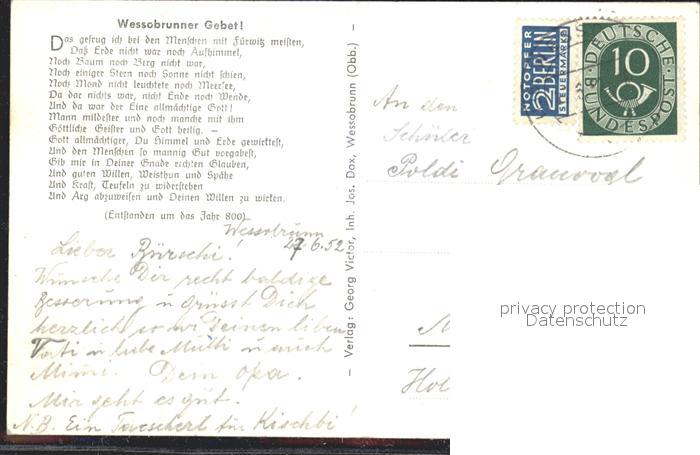 Wessobrunner Gebet!
Das gefrug ich bei den Menschen mit Fürwitz meisten,
Daß Erde nicht war noch Aufhimmel,
Noch Baum noch Berg nicht war,
Noch einiger Stern noch Sonne nicht schien,
Noch Mond nicht leuchtete noch Meersee,
Da dar nichts war, nicht Ende noch Wende,
Und da war der Eine allmächtige Gott!
Mann mildester und noch manche mit ihm
Göttliche Geister und Gott heilig. —
Gott allmächtiger, Du Himmel und Erde gewirktest,
Und den Menschen so mannig Gut vorgabest,
Gib mir in Deiner Gnade rechten Glauben,
Und guten Willen, Weisthun und Spähe
Und Kraft, Teufeln zu widerstehen
Und Arg abzuweisen und Deinen Willen zu wirken.
(Entstanden um das Jahr 800)
Wessobrunn
27.6.52
Lieber Bürschi!
Wünsche Dir recht baldige
Besserung u grüsst Dich
herzlich so wi Deinen liben
Vati u lube Mutti u auch
Mimi. Dem Opa.
Mir geht es gut.
N.B. Ein für Kischbi!
– Verlag: Georg Victor, Inh. Jos. Dax, Wessobrunn (Obb.) –
NOTOPFER
2 BERLIN
STEUERMARKE
DEUTSCHE
10
BUNDESPOST
An den
Schüler
Poldi Grauvogl
privacy protection
Datenschutz
Hol